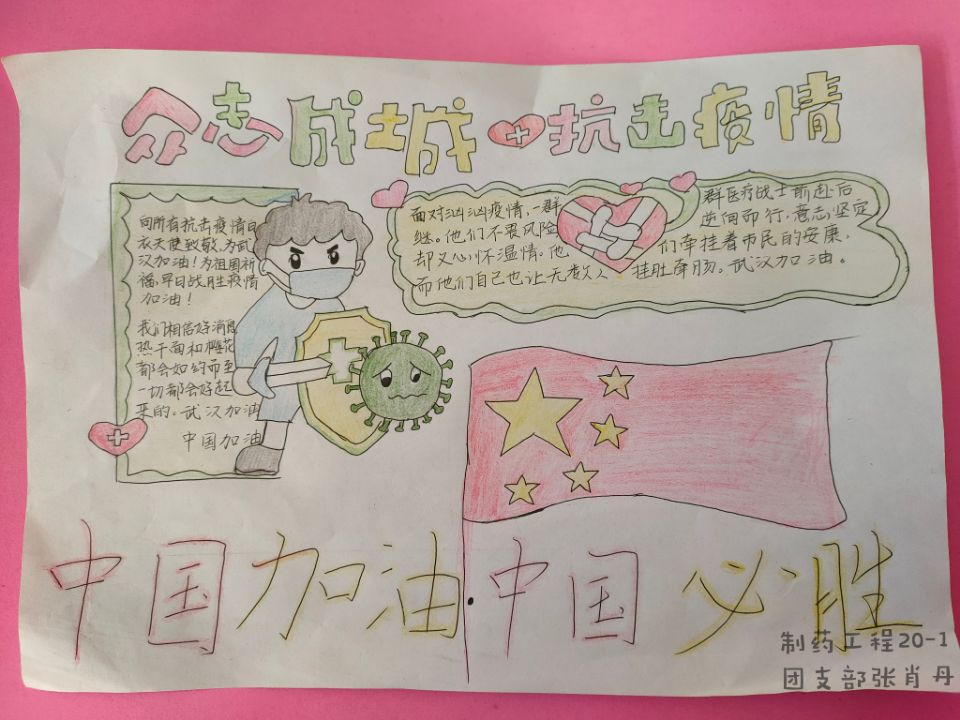 众志成城抗击疫情
向所有抗击疫情白
衣天使致敬,为武
汉加油!为祖国祈
福,早日战胜疫情
加油!
我们相信好消息
热干面和樱花
都会如约而至
一切都会好起
来的。武汉加油
中国加油
面对汹汹疫情,一群
继。他们不畏风险
却又心怀温情。他
而他们自己也让无数人
群医疗战士前赴后
逆向而行,意志坚定
们牵挂着市民的安康,
挂肚牵肠。武汉加油。
中国加油·中国必胜
制药工程20-1
团支部张肖丹